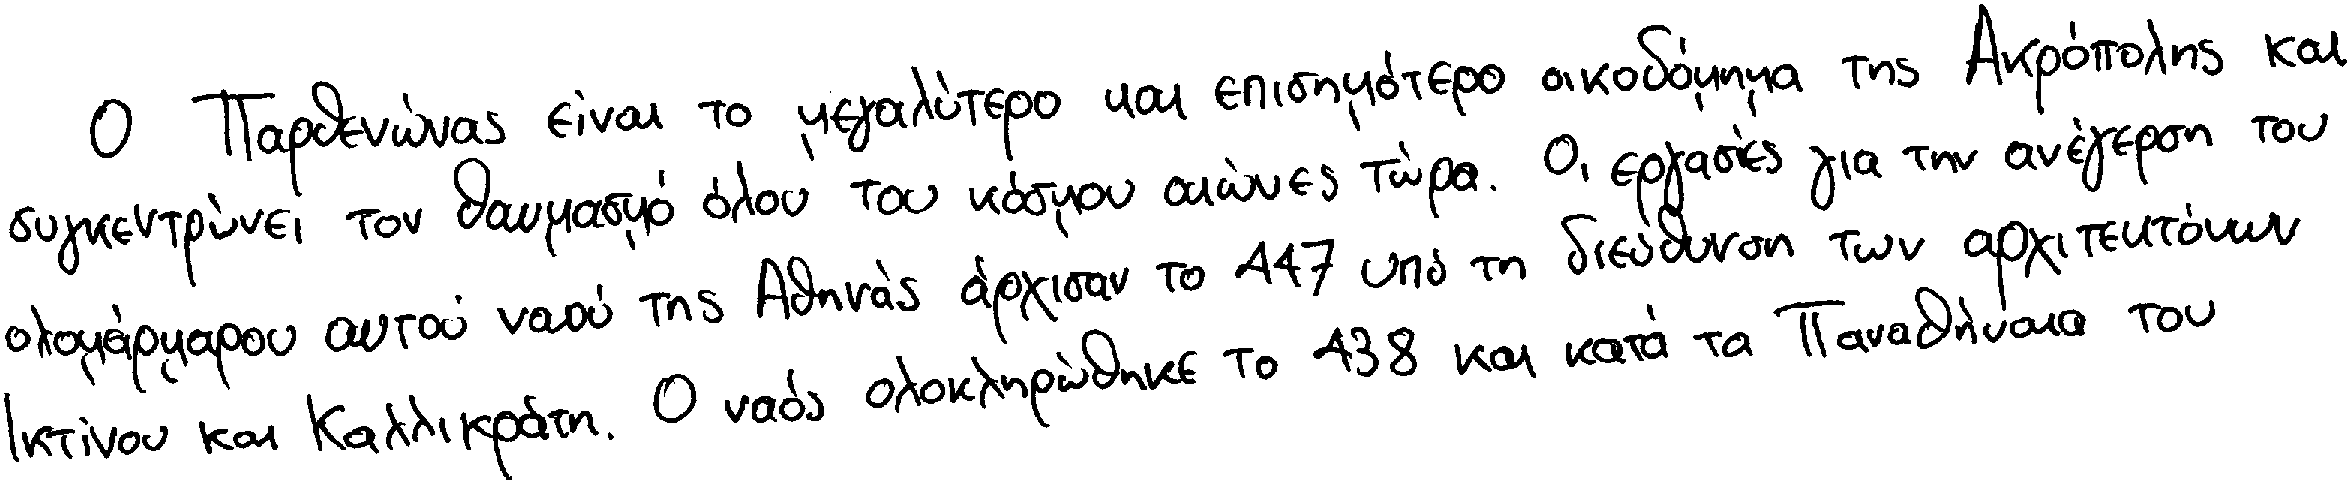 Ο Παρθενώνας είναι το μεγαλύτερο και επισημότερο οικοδόμημα της Ακρόπολης και
συγκεντρώνει τον θαυμασμό όλου του κόσμου αιώνες τώρα. Οι εργασίες για την ανέγερση του
ολομάρμαρου αυτού ναού της Αθηνάς άρχισαν το 447 υπό τη διεύθυνση των αρχιτεκτόνων
Ικτίνου και Καλλικράτη. Ο ναός ολοκληρώθηκε το 438 και κατά τα Παναθήναια του